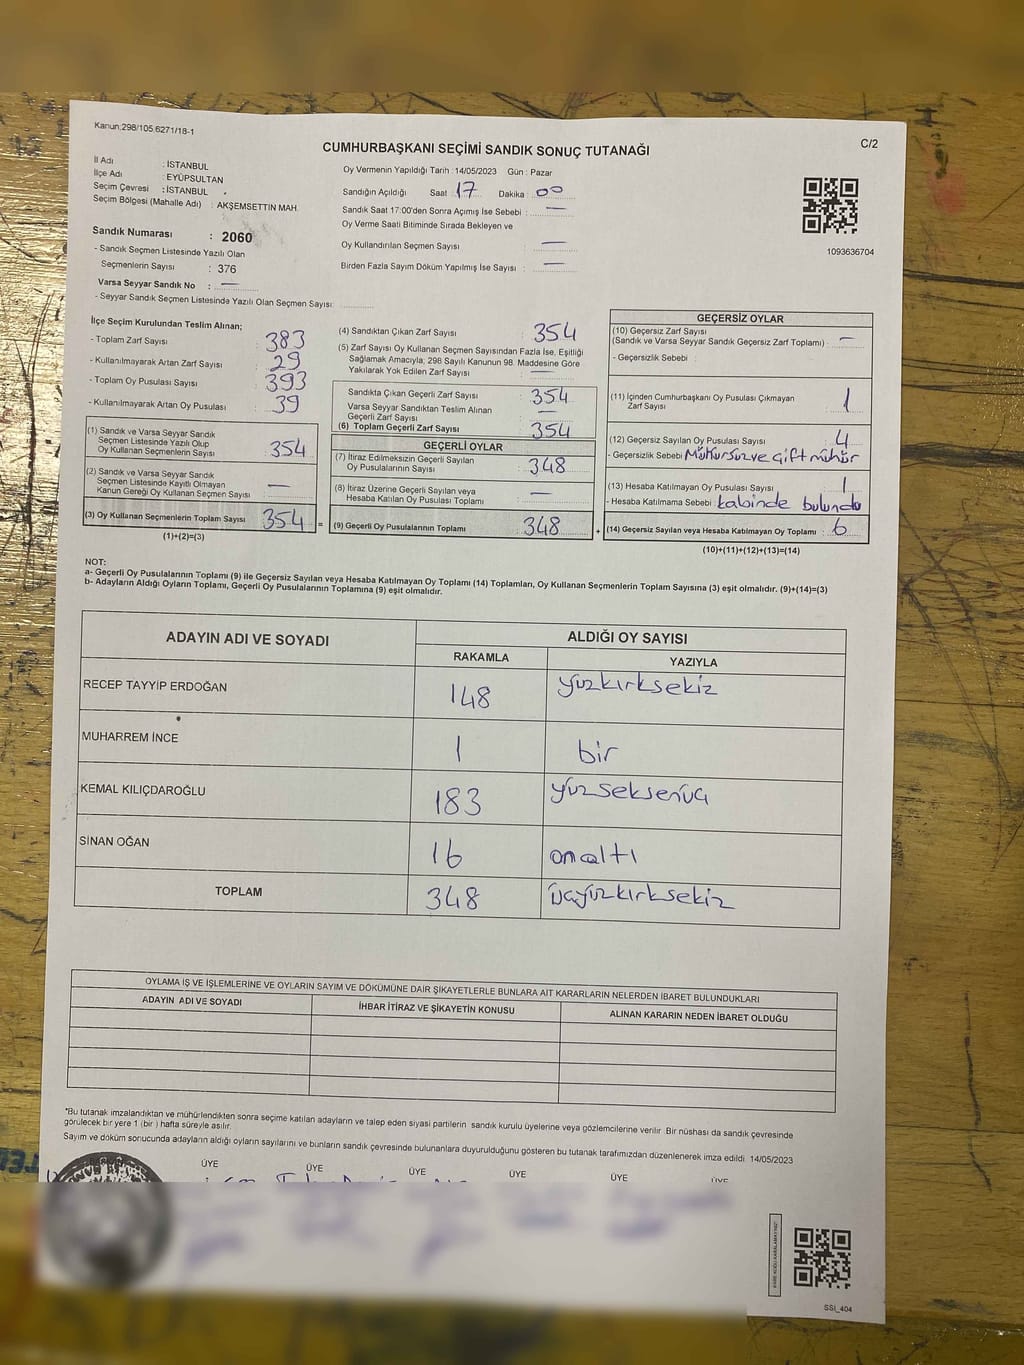 Kanun;298/105.6271/18-1
CUMHURBAŞKANI SEÇİMİ SANDIK SONUÇ TUTANAĞI
C/2
İl Adı : İSTANBUL
İlçe Adı : EYÜPSULTAN
Seçim Çevresi : İSTANBUL
Seçim Bölgesi (Mahalle Adı) : AKŞEMSETTİN MAH.
Oy Vermenin Yapıldığı Tarih : 14/05/2023 Gün : Pazar
Sandığın Açıldığı Saat 17 Dakika : 00
Sandık Saat 17:00'den Sonra Açımış İse Sebebi : —
Oy Verme Saati Bitiminde Sırada Bekleyen ve
Oy Kullandırılan Seçmen Sayısı : —
Birden Fazla Sayım Döküm Yapılmış İse Sayısı : —
1093636704
Sandık Numarası : 2060
- Sandık Seçmen Listesinde Yazılı Olan
Seçmenlerin Sayısı : 376
Varsa Seyyar Sandık No : —
- Seyyar Sandık Seçmen Listesinde Yazılı Olan Seçmen Sayısı:
İlçe Seçim Kurulundan Teslim Alınan;
- Toplam Zarf Sayısı : 383
- Kullanılmayarak Artan Zarf Sayısı : 29
- Toplam Oy Pusulası Sayısı : 393
- Kullanılmayarak Artan Oy Pusulası : 39
(1) Sandık ve Varsa Seyyar Sandık
Seçmen Listesinde Yazılı Olup
Oy Kullanan Seçmenlerin Sayısı : 354
(2) Sandık ve Varsa Seyyar Sandık
Seçmen Listesinde Kayıtlı Olmayan
Kanun Gereği Oy Kullanan Seçmen Sayısı : —
(3) Oy Kullanan Seçmenlerin Toplam Sayısı : 354 =
(1)+(2)=(3)
(4) Sandıktan Çıkan Zarf Sayısı : 354
(5) Zarf Sayısı Oy Kullanan Seçmen Sayısından Fazla İse, Eşitliği
Sağlamak Amacıyla; 298 Sayılı Kanunun 98. Maddesine Göre
Yakılarak Yok Edilen Zarf Sayısı : —
Sandıkta Çıkan Geçerli Zarf Sayısı : 354
Varsa Seyyar Sandıktan Teslim Alınan
Geçerli Zarf Sayısı : —
(6) Toplam Geçerli Zarf Sayısı : 354
GEÇERLİ OYLAR
(7) İtiraz Edilmeksizin Geçerli Sayılan
Oy Pusulalarının Sayısı : 348
(8) İtiraz Üzerine Geçerli Sayılan veya
Hesaba Katılan Oy Pusulası Toplamı : —
(9) Geçerli Oy Pusulalarının Toplamı : 348 +
GEÇERSİZ OYLAR
(10) Geçersiz Zarf Sayısı
(Sandık ve Varsa Seyyar Sandık Geçersiz Zarf Toplamı) : —
- Geçersizlik Sebebi :
(11) İçinden Cumhurbaşkanı Oy Pusulası Çıkmayan
Zarf Sayısı : 1
(12) Geçersiz Sayılan Oy Pusulası Sayısı : 4
- Geçersizlik Sebebi Mühürsüz ve çift mühür
(13) Hesaba Katılmayan Oy Pusulası Sayısı : 1
- Hesaba Katılmama Sebebi kabinde bulundu
(14) Geçersiz Sayılan veya Hesaba Katılmayan Oy Toplamı : 6
(10)+(11)+(12)+(13)=(14)
NOT:
a- Geçerli Oy Pusulalarının Toplamı (9) ile Geçersiz Sayılan veya Hesaba Katılmayan Oy Toplamı (14) Toplamları, Oy Kullanan Seçmenlerin Toplam Sayısına (3) eşit olmalıdır. (9)+(14)=(3)
b- Adayların Aldığı Oyların Toplamı, Geçerli Oy Pusulalarının Toplamına (9) eşit olmalıdır.
ADAYIN ADI VE SOYADI ALDIĞI OY SAYISI
RAKAMLA YAZIYLA
RECEP TAYYİP ERDOĞAN 148 yüzkırksekiz
MUHARREM İNCE 1 bir
KEMAL KILIÇDAROĞLU 183 yüzseksenüç
SİNAN OĞAN 16 onaltı
TOPLAM 348 üçyüzkırksekiz
OYLAMA İŞ VE İŞLEMLERİNE VE OYLARIN SAYIM VE DÖKÜMÜNE DAİR ŞİKAYETLERLE BUNLARA AİT KARARLARIN NELERDEN İBARET BULUNDUKLARI
ADAYIN ADI VE SOYADI İHBAR İTİRAZ VE ŞİKAYETİN KONUSU ALINAN KARARIN NEDEN İBARET OLDUĞU
*Bu tutanak imzalandıktan ve mühürlendikten sonra seçime katılan adayların ve talep eden siyasi partilerin sandık kurulu üyelerine veya gözlemcilerine verilir Bir nüshası da sandık çevresinde
görülecek bir yere 1 (bir ) hafta süreyle asılır.
Sayım ve döküm sonucunda adayların aldığı oyların sayılarını ve bunların sandık çevresinde bulunanlara duyurulduğunu gösteren bu tutanak tarafımızdan düzenlenerek imza edildi 14/05/2023
ÜYE ÜYE ÜYE ÜYE ÜYE ÜYE
SSİ_404